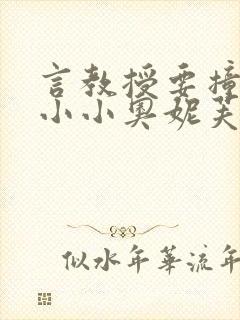 言教授要撞
小小奥妮芙
似水年華流年